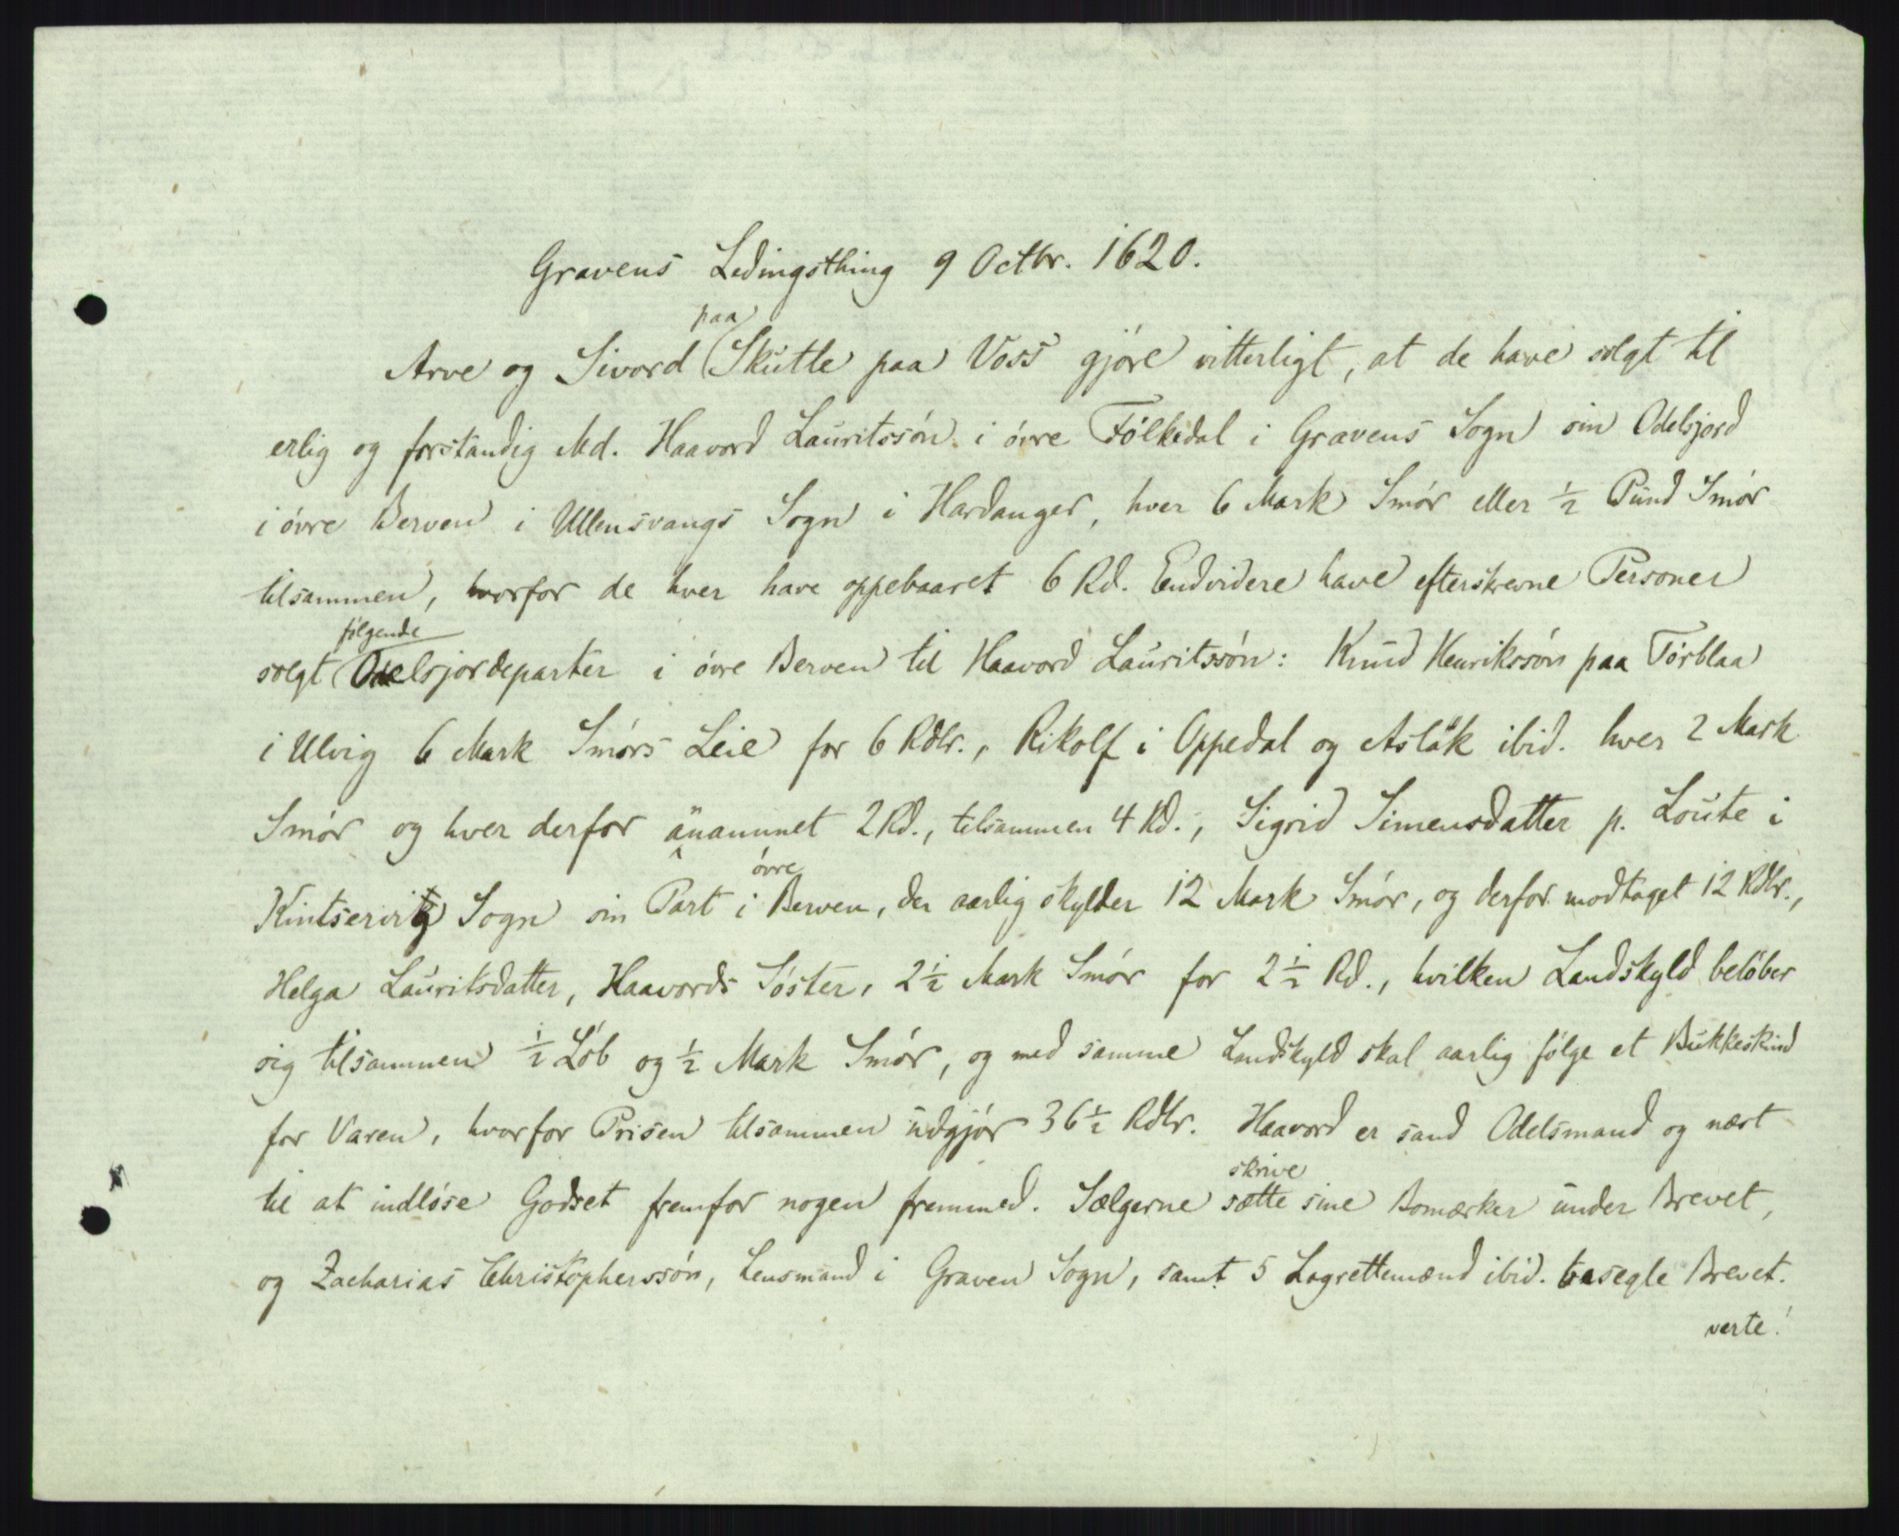 Gravens Ledingsthing 9 Octbr. 1620.
paa
Arve og Sivord Skutle paa Voss gjöre vitterligt, at de have solgt til
erlig og forstandig Md. Haavord Lauritssön i övre Fölkedal i Gravens Sogn sin Odelsjord
i övre Berven i Ullensvangs Sogn i Hardanger, hver 6 Mark Smör eller ½ Pund Smör
tilsammen, hvorfor de hver have oppebaaret 6 Rd. Endvidere have efterskrevne Personer
følgende
solgt Odelsjordeparter i övre Berven til Haavord Lauritssön: Knud Henrikssön paa Torblaa
i Ulvig 6 Mark Smörs Leie for 6 Rdlr., Rikolf i Oppedal og Aslak ibid. hver 2 Mark
Smör og hver derfor anammet 2 Rd., tilsammen 4 Rd., Sigrid Simensdatter p. Loute i
övre
Kintservig Sogn sin Part i Berven, der aarlig skylder 12 Mark Smör, og derfor modtaget 12 Rdlr.,
Helga Lauritsdatter, Haavords Söster, 2½ Mark Smör for 2½ Rd., hvilken Landskyld belöber
sig tilsammen ½ Löb og ½ Mark Smör, og med samme Landskyld skal aarlig fölge et Bukkeskind
for Varen, hvorfor Prisen tilsammen udgjör 36½ Rdlr. Haavord er sand Odelsmand og næst
til at indlöse Godset fremfor nogen fremmed. Sælgerne sætte sine Bomærker under Brevet,
skrive
og Zacharias Christopherssön, Lensmand i Graven Sogn, samt 5 Lagrettemænd ibid. besegle Brevet.
verte!